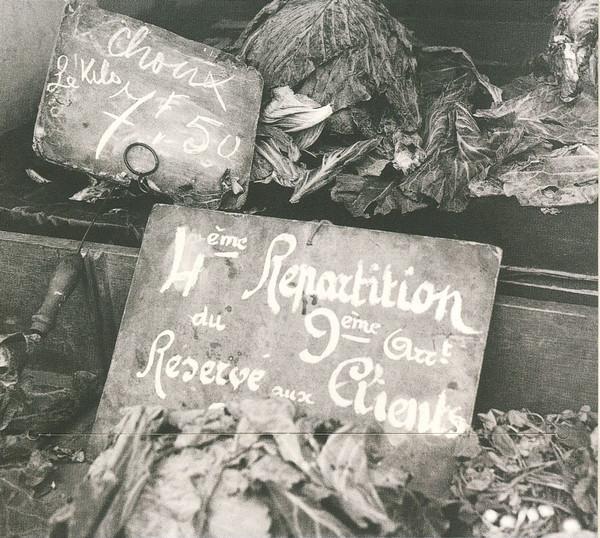 Choux
Le Kilo
7F50
4ème Repartition
du 9ème Arrt
Reservé aux Clients